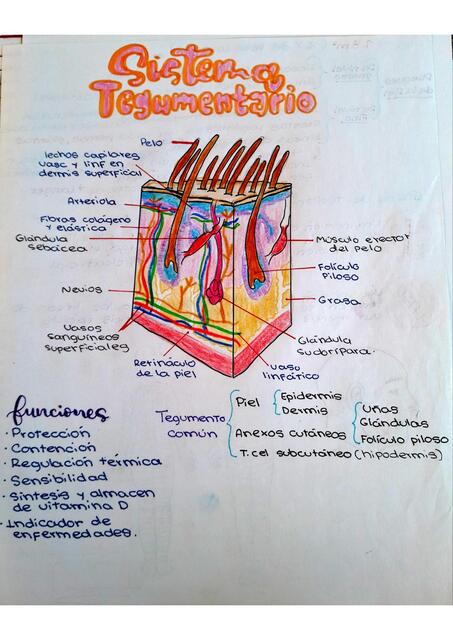 Sistema
Tegumentario
Pelo
lechos capilares
vasc y linf en
dermis superficial
Arteriola
Fibras colágeno
y elástica
Glándula
sebácea
Nevios
Vasos
sanguíneos
superficiales
Retináculo
de la piel
Músculo erector
del pelo
Folículo
Piloso
Grasa
Glándula
sudorípara.
Vaso
linfático
funciones
· Protección
· Contención
· Regulación térmica
· Sensibilidad
· Síntesis y almacen
de vitamina D
· Indicador de
enfermedades.
Tegumento
común
Piel
Epidermis
Dermis
Anexos cutáneos
Uñas
Glándulas
Folículo piloso
T. cel subcutáneo (hipodermis)